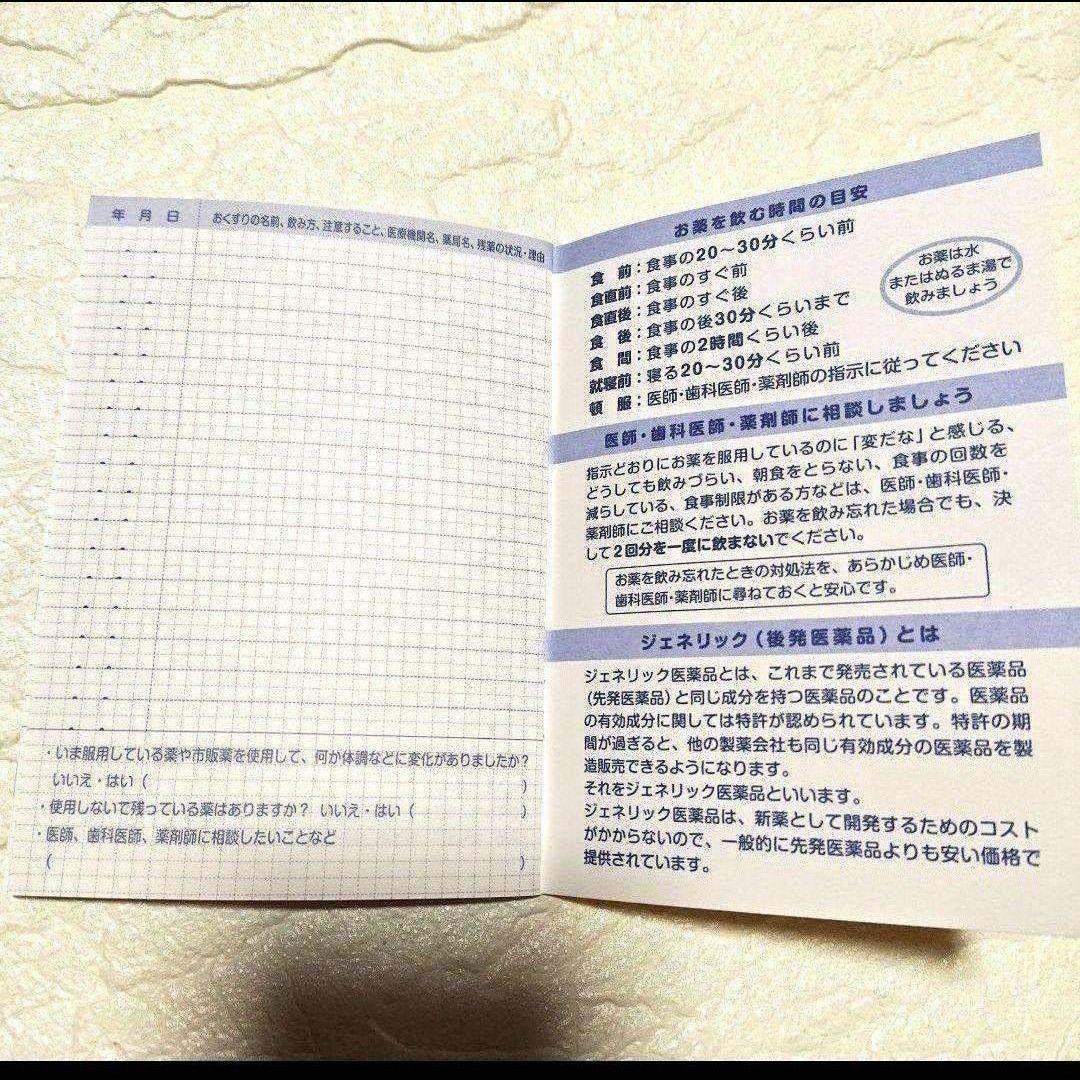 年 月 日
おくすりの名前、飲み方、注意すること、医療機関名、薬局名、残薬の状況・理由
・いま服用している薬や市販薬を使用して、何か体調などに変化がありましたか?
いいえ・はい( )
・使用しないで残っている薬はありますか? いいえ・はい( )
・医師、歯科医師、薬剤師に相談したいことなど
( )
お薬を飲む時間の目安
食 前:食事の20〜30分くらい前
食直前:食事のすぐ前
食直後:食事のすぐ後
食 後:食事の後30分くらいまで
食 間:食事の2時間くらい後
就寝前:寝る20〜30分くらい前
頓 服:医師・歯科医師・薬剤師の指示に従ってください
お薬は水
またはぬるま湯で
飲みましょう
医師・歯科医師・薬剤師に相談しましょう
指示どおりにお薬を服用しているのに「変だな」と感じる、
どうしても飲みづらい、朝食をとらない、食事の回数を
減らしている、食事制限がある方などは、医師・歯科医師・
薬剤師にご相談ください。お薬を飲み忘れた場合でも、決
して2回分を一度に飲まないでください。
お薬を飲み忘れたときの対処法を、あらかじめ医師・
歯科医師・薬剤師に尋ねておくと安心です。
ジェネリック(後発医薬品)とは
ジェネリック医薬品とは、これまで発売されている医薬品
(先発医薬品)と同じ成分を持つ医薬品のことです。医薬品
の有効成分に関しては特許が認められています。特許の期
間が過ぎると、他の製薬会社も同じ有効成分の医薬品を製
造販売できるようになります。
それをジェネリック医薬品といいます。
ジェネリック医薬品は、新薬として開発するためのコスト
がかからないので、一般的に先発医薬品よりも安い価格で
提供されています。